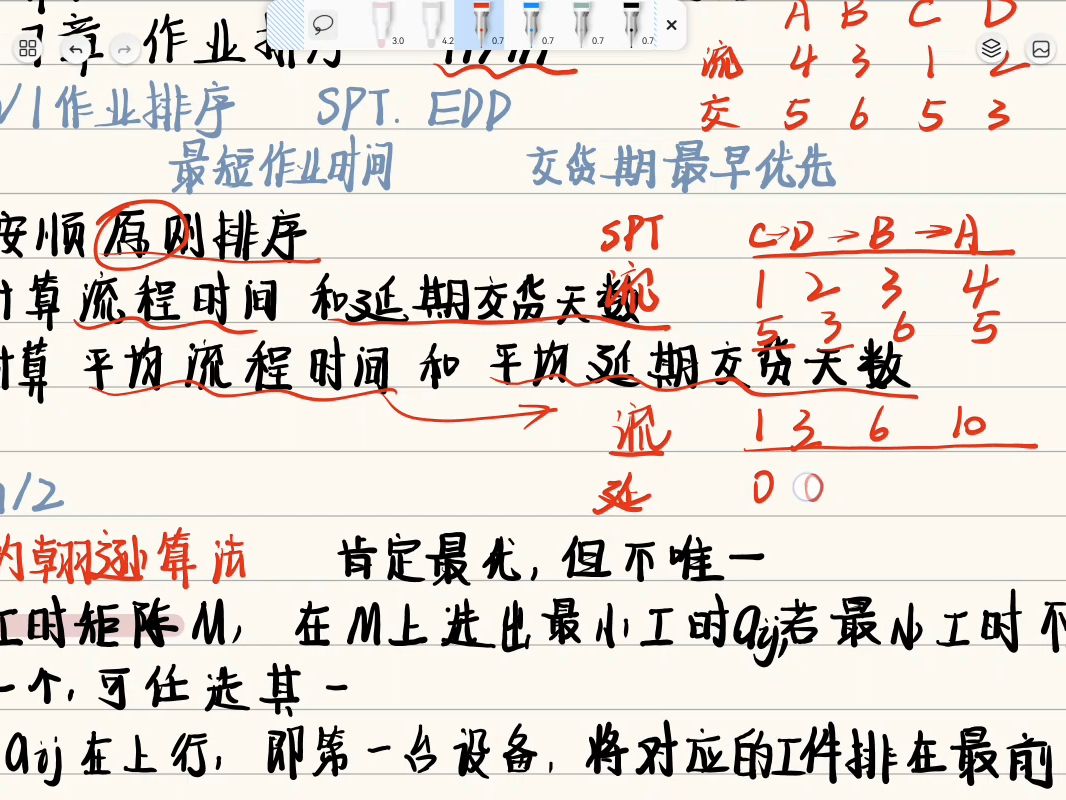 3.0 4.2 0.7 0.7 0.7 0.7
章 作业排序
A B C D
流 4 3 1 2
/1作业排序 SPT. EDD
交 5 6 5 3
最短作业时间 交货期最早优先
安顺原则排序
SPT C→D→B→A
计算流程时间 和延期交货天数
流 1 2 3 4
5 3 6 5
计算 平均流程时间 和 平均延期交货天数
流 1 3 6 10
延 0 0
/2
的翱逊算法 肯定最优,但不唯一
工时矩阵M, 在M上选出最小工时aij,若最小工时不
一个,可任选其一
aij在上行,即第一台设备,将对应的工件排在最前